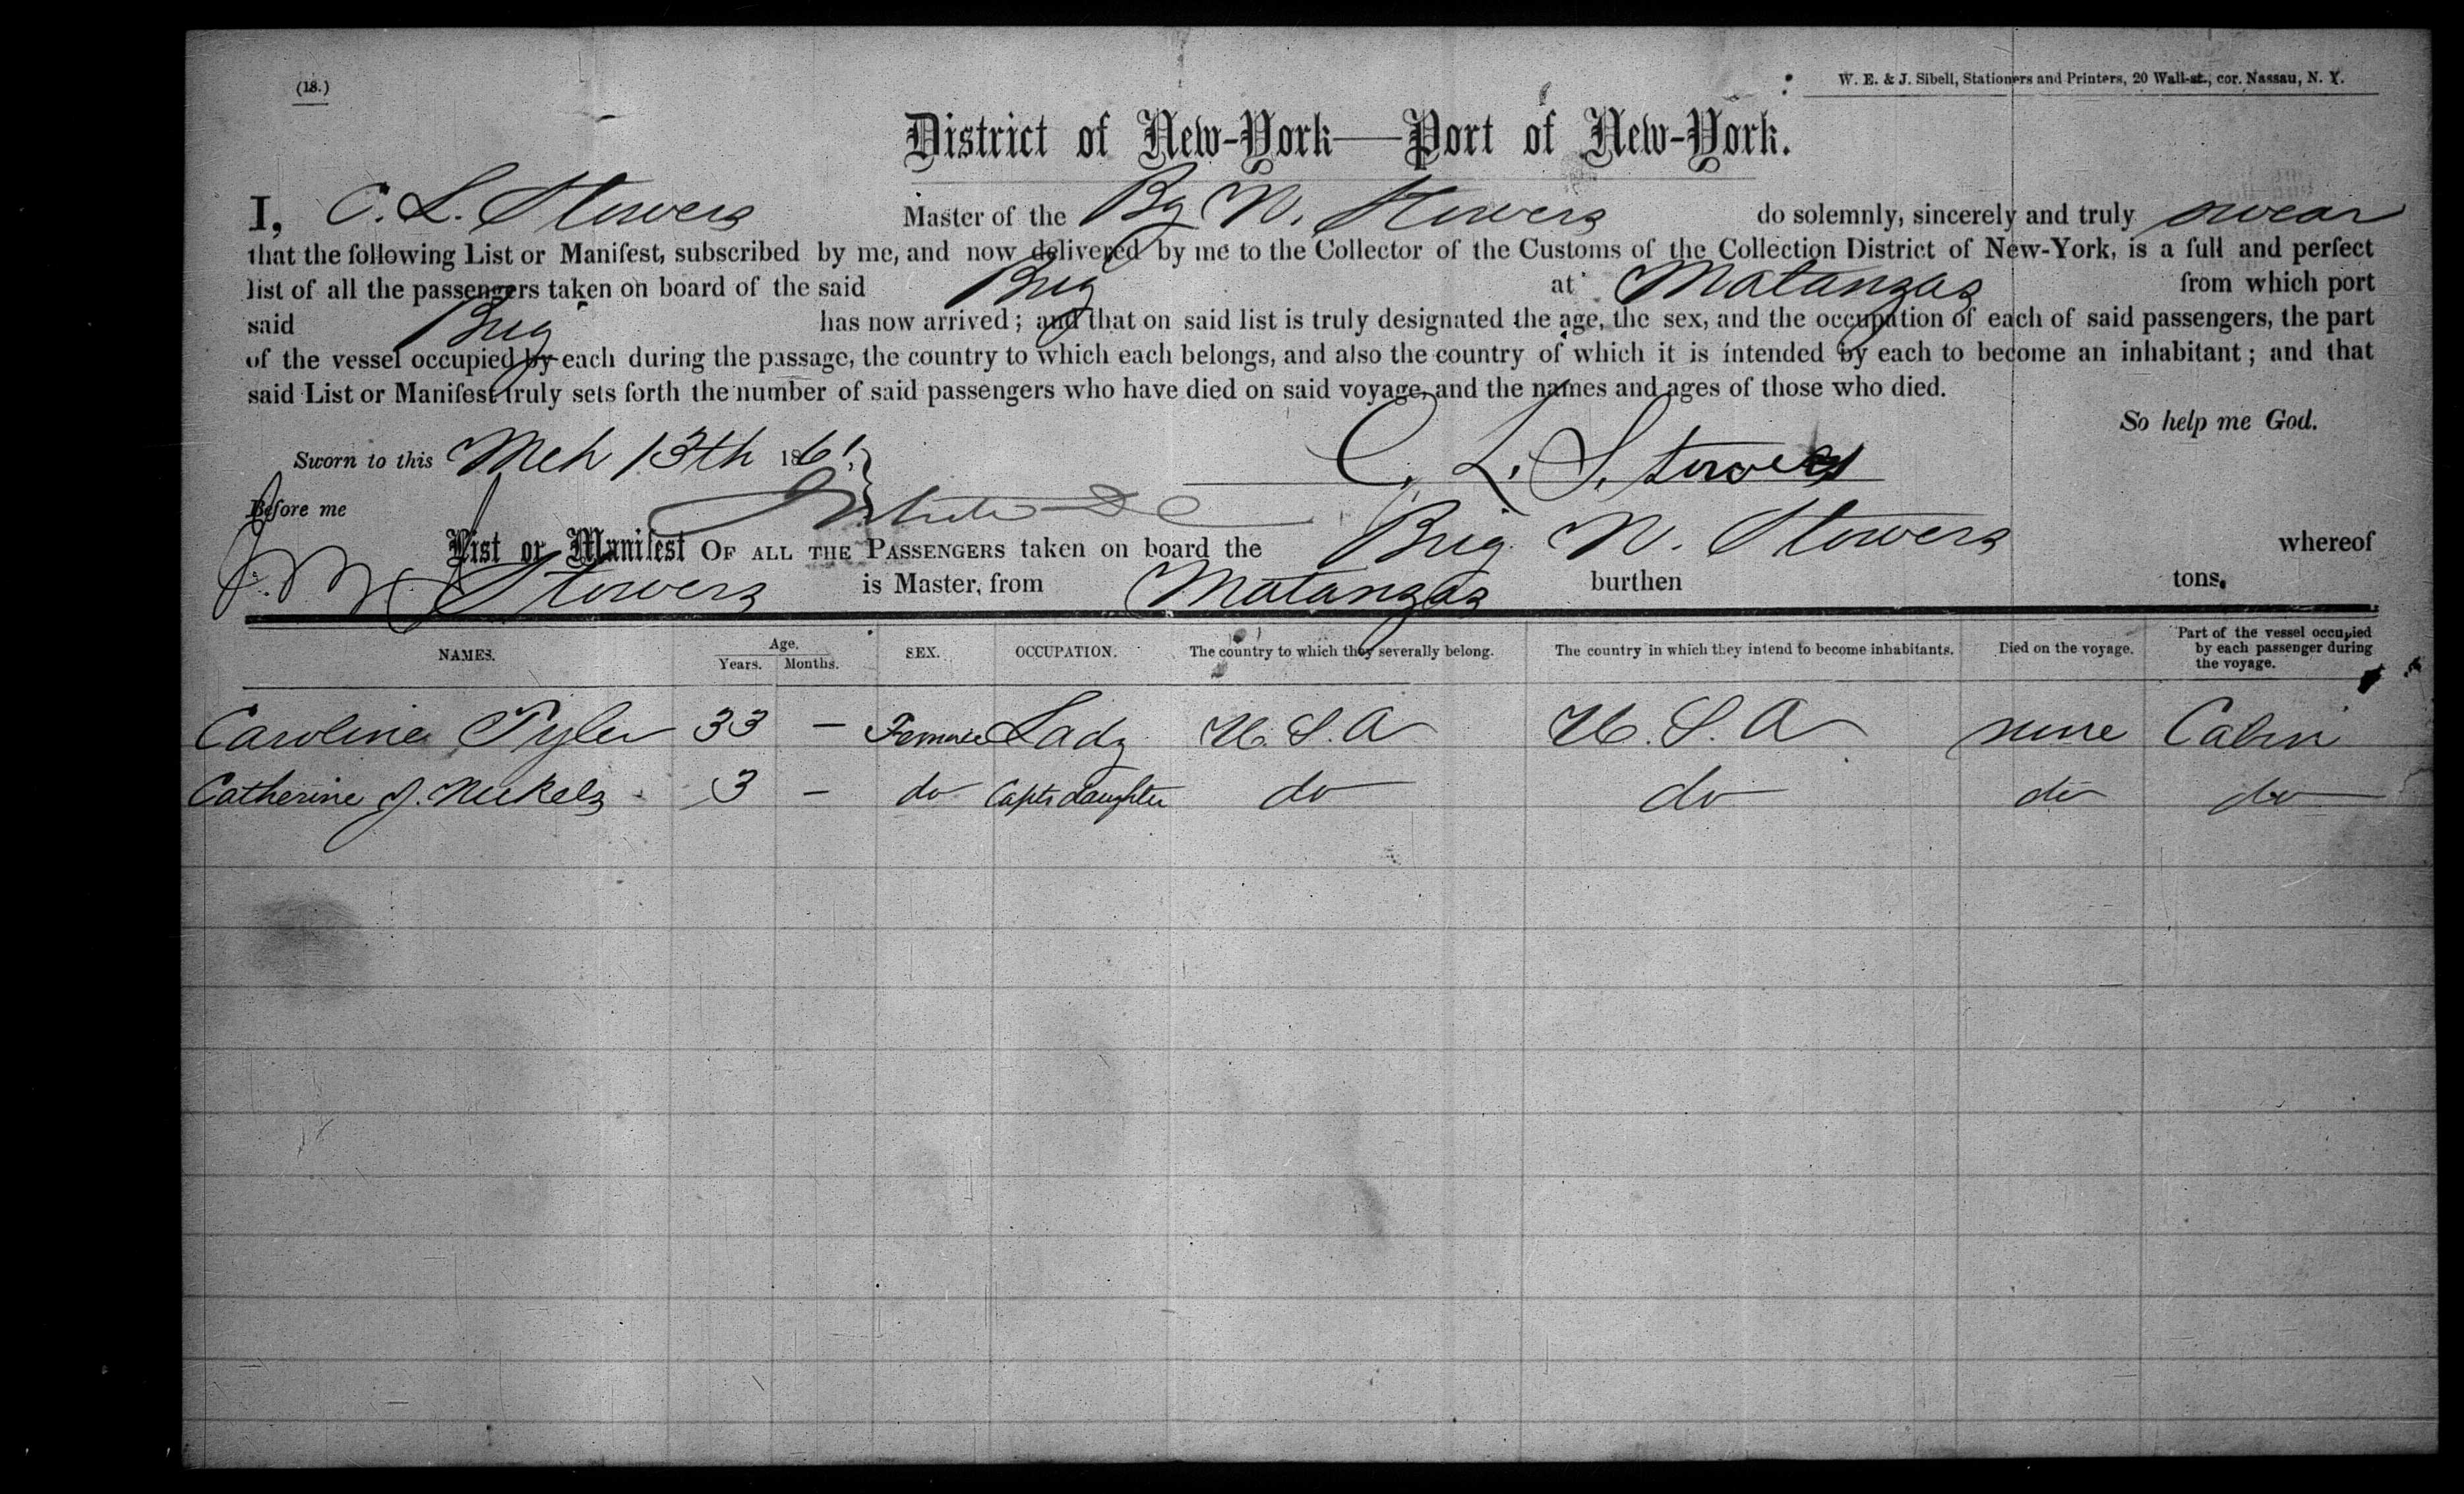 (18.)
W. E. & J. Sibell, Stationers and Printers, 20 Wall-st., cor. Nassau, N. Y.
District of New-York—Port of New-York.
I, C. L. Stowers Master of the Bg N. Stowers do solemnly, sincerely and truly swear
that the following List or Manifest, subscribed by me, and now delivered by me to the Collector of the Customs of the Collection District of New-York, is a full and perfect
list of all the passengers taken on board of the said Brig at Matanzas from which port
said Brig has now arrived; and that on said list is truly designated the age, the sex, and the occupation of each of said passengers, the part
of the vessel occupied by each during the passage, the country to which each belongs, and also the country of which it is intended by each to become an inhabitant; and that
said List or Manifest truly sets forth the number of said passengers who have died on said voyage, and the names and ages of those who died.
So help me God.
Sworn to this Mch 13th 1861.
C. L. Stowers
Before me
List or Manifest OF ALL THE PASSENGERS taken on board the Brig N. Stowers whereof
Stowers is Master, from Matanzas burthen tons.
NAMES. Age. Years. Months. SEX. OCCUPATION. The country to which they severally belong. The country in which they intend to become inhabitants. Died on the voyage. Part of the vessel occupied by each passenger during the voyage.
Caroline Tyler 33 – Female Lady U.S.A U.S.A none Cabin
Catherine J. Nickels 3 – do Capts daughter do do do do